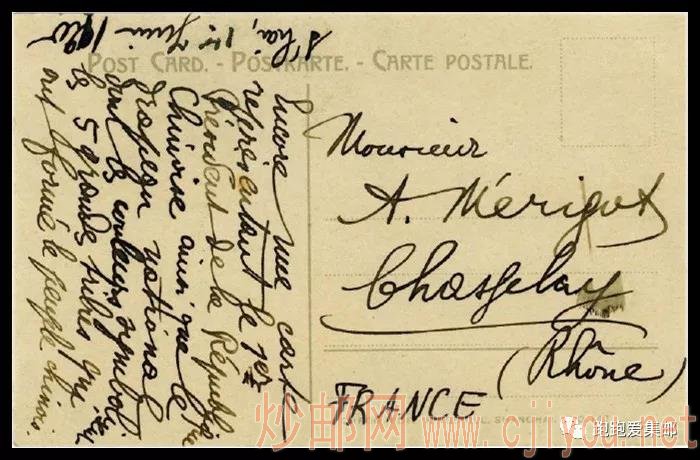 POST CARD. - POSTKARTE. - CARTE POSTALE.
S'hai, Juin
Encore une carte
représentant le 1er
Président de la République
Chinoise ainsi que le
drapeau national
dont les couleurs symboli
les 5 grandes tribus qui
ont formé le peuple chinois.
Monsieur
A. Mérigot
Chasselay
(Rhône)
FRANCE
SHANGHAI.
炒邮网 www.cjiyou.net
跑跑爱集邮